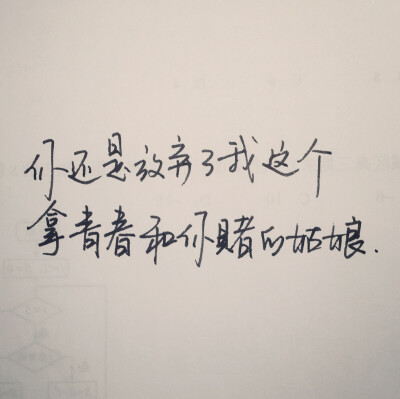 你还是放弃了我这个
拿青春和你赌的姑娘.